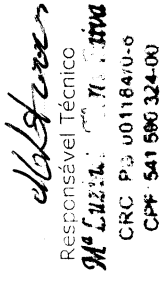 Responsável Técnico
Mª Luzia
CRC PB 001184/0-6
CPF 541 580 324-00